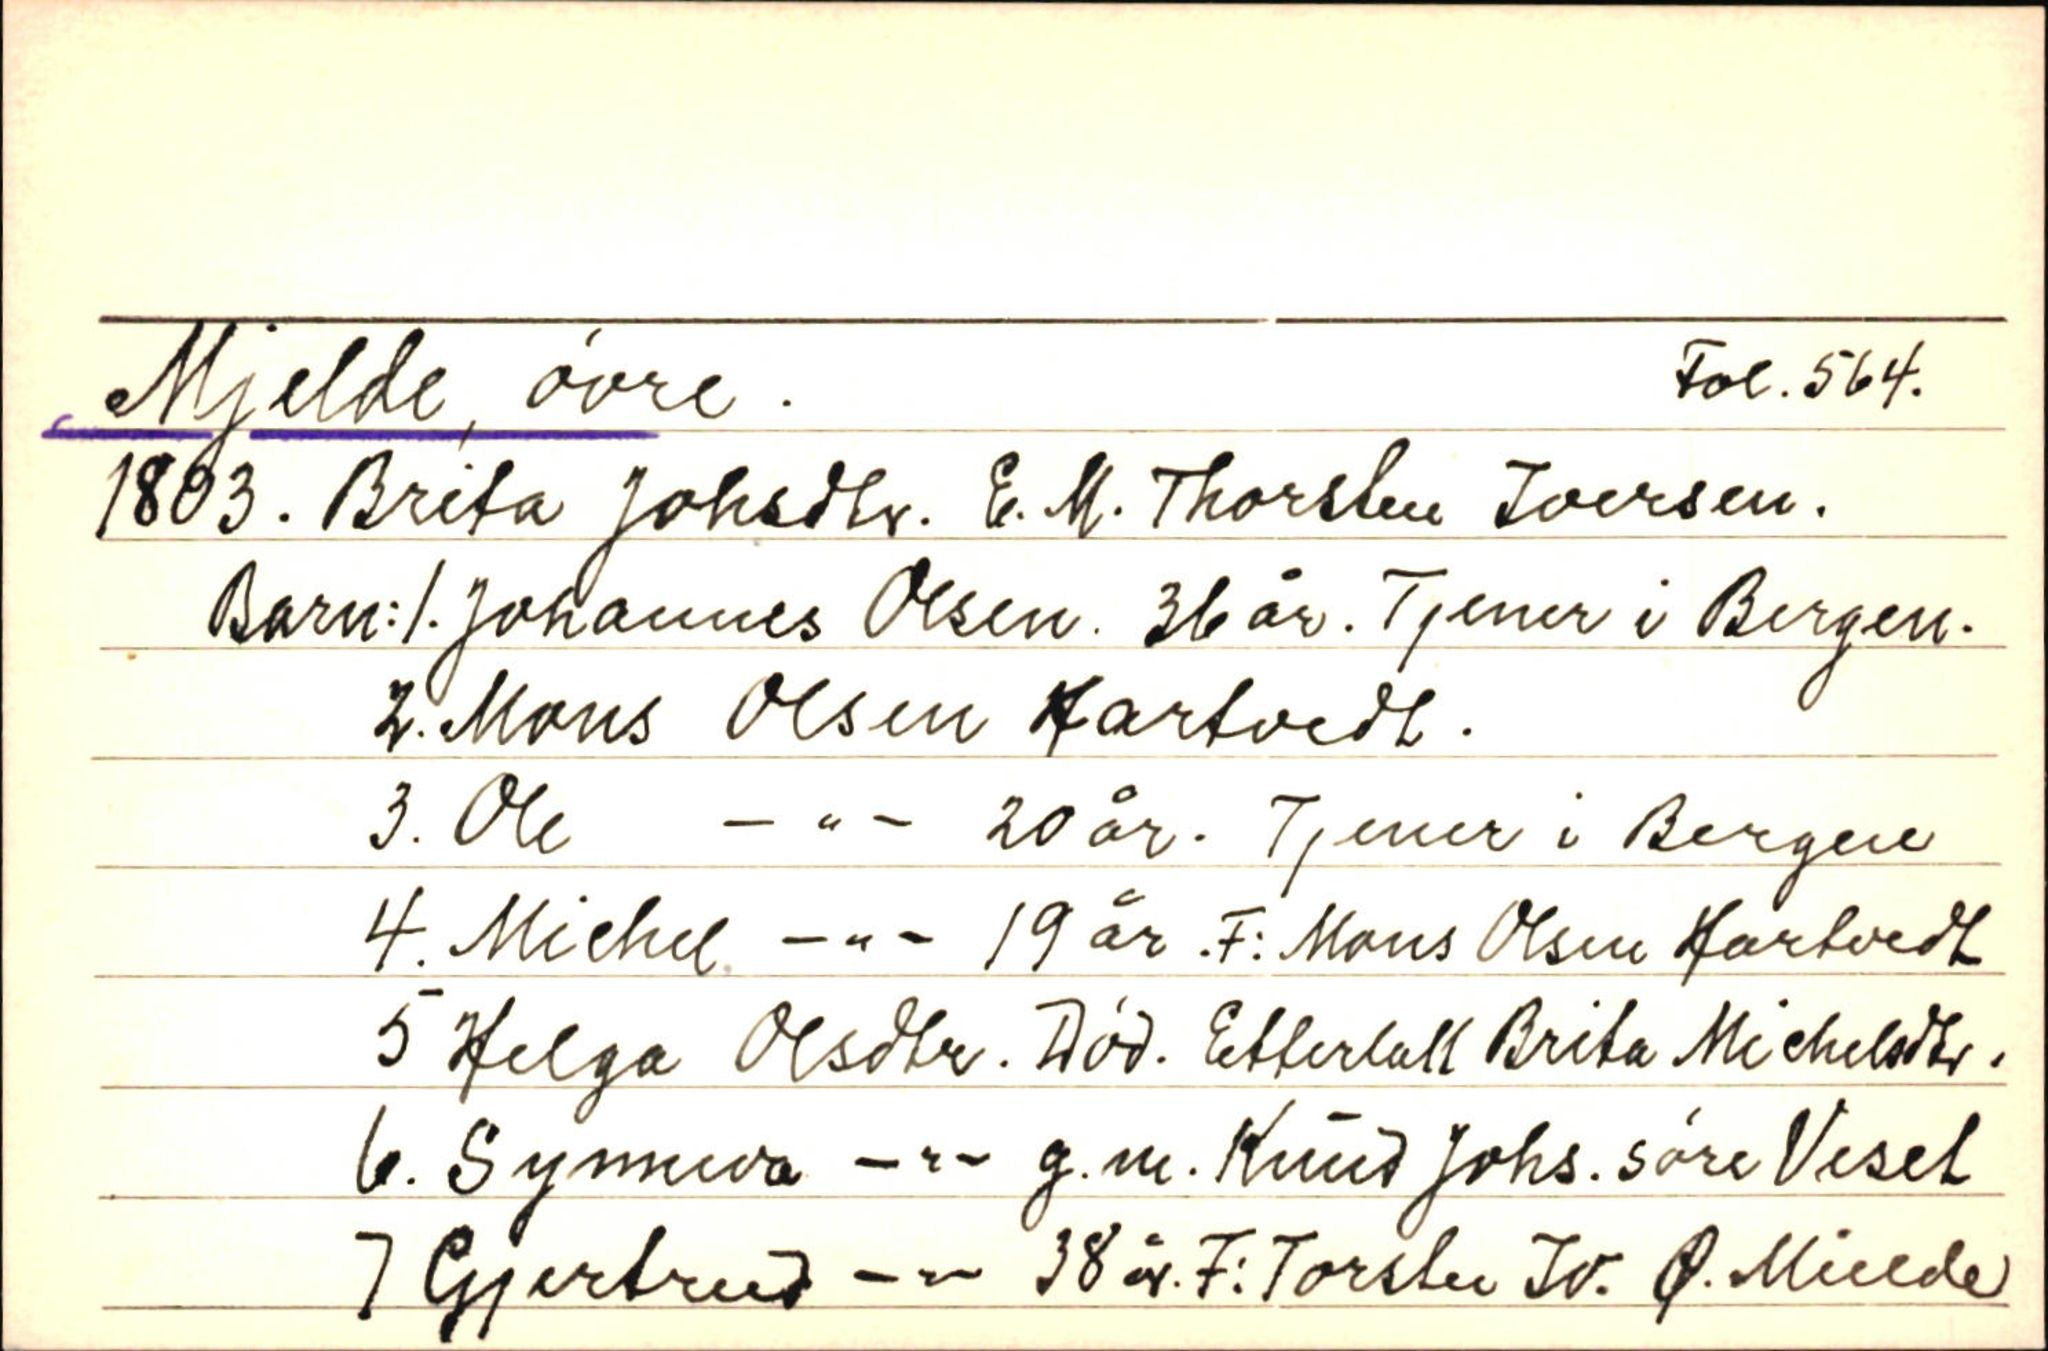 Mjelde, óvre. Fol. 564.
1803. Brita Johsdtr. E. M. Thorsten Iversen.
Barn: 1. Johannes Olsen. 36 år. Tjener i Bergen.
2. Mons Olsen Hartvedt.
3. Ole -"- 20 år. Tjener i Bergen
4. Michel -"- 19 år. F: Mons Olsen Hartvedt
5 Helga Olsdtr. Död. Etterlatt Brita Michelsdtr.
6. Synneva -"- g.m. Knud Johs. sóre Veset
7 Gjertrud -"- 38 år. F: Torsten Iv. Ø. Mielde